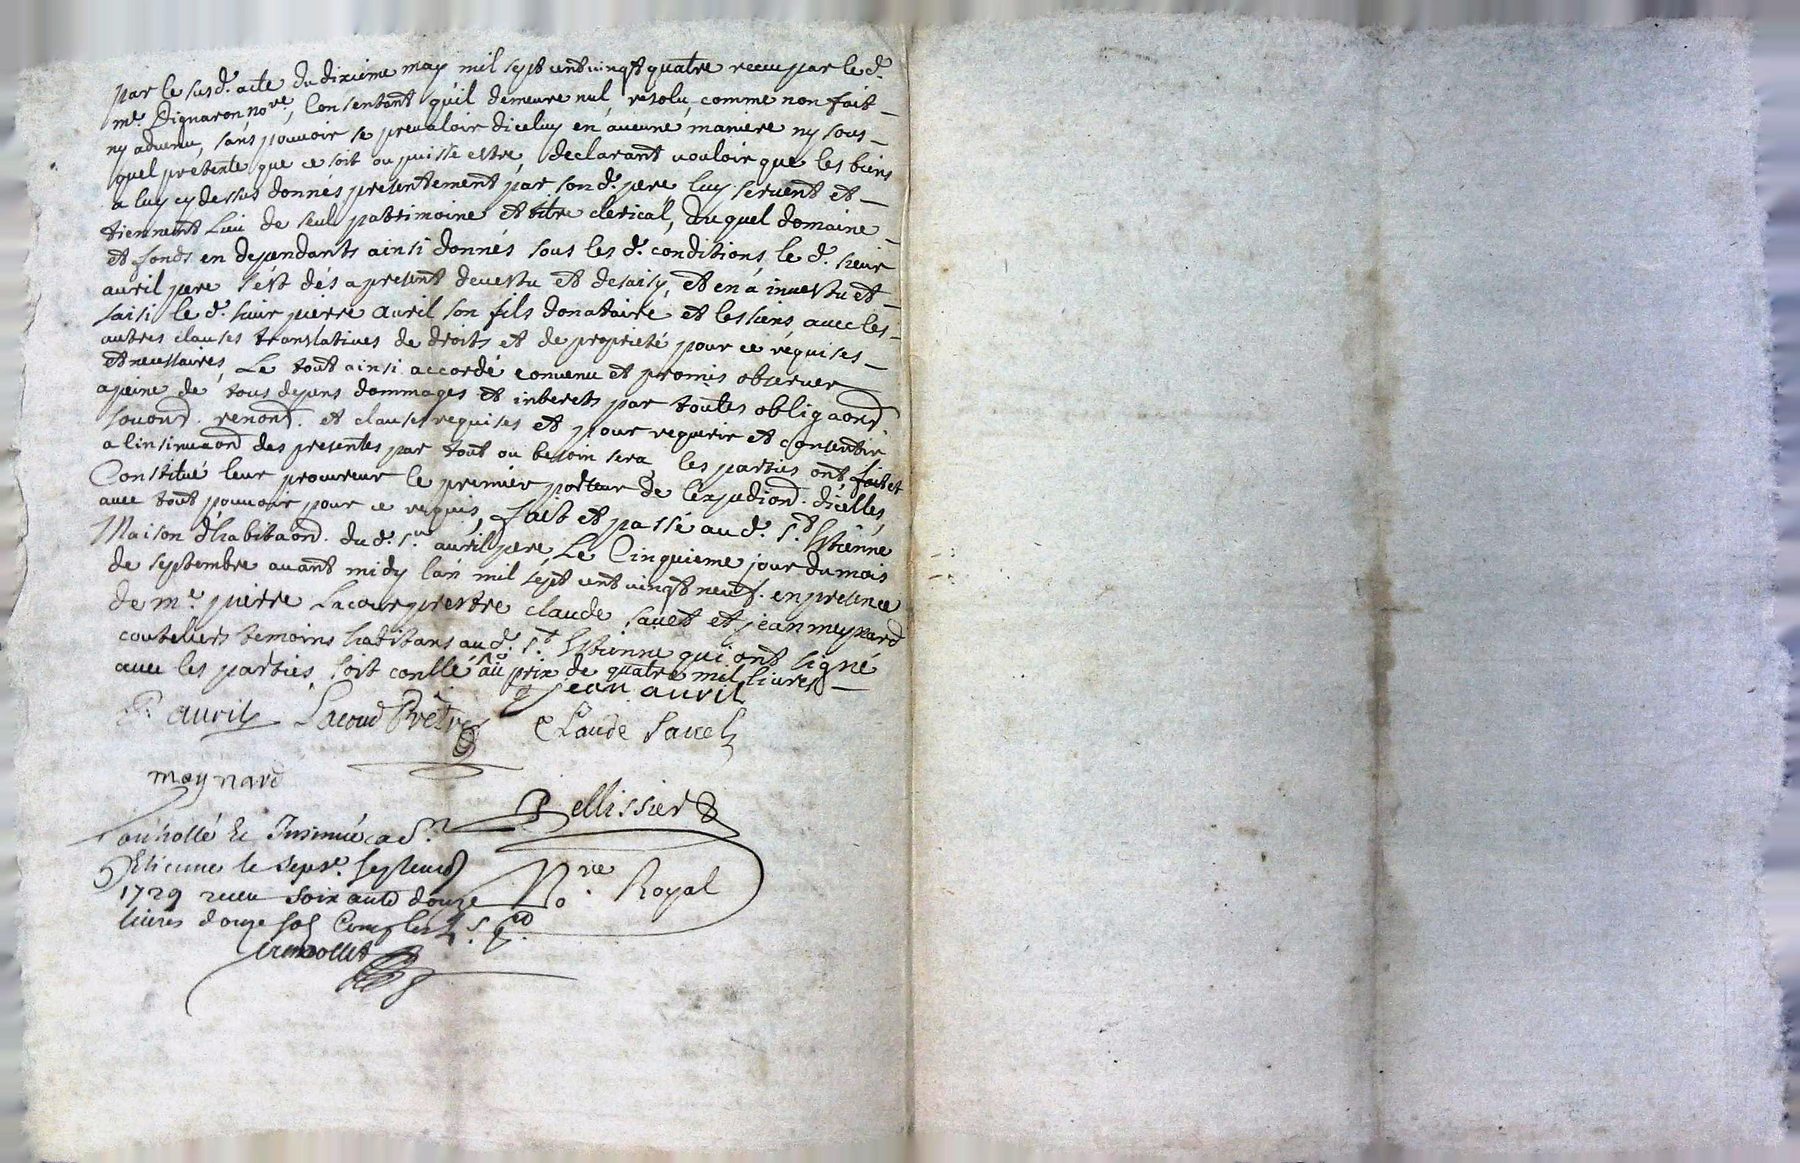 par le susd. acte du dixieme may mil sept cent vingt quatre receu par le d.
me. Pignaron nore, Consentant qu'il demeure nul, resolu, comme non fait
ny advenu, sans pouvoir se prevaloir diceluy en aucune maniere ny sous
quel pretexte que ce soit ou puisse estre, declarant vouloir que les biens
a luy cy dessus donnés presentement par son d. pere luy servent et
tiennent Lieu de seul patrimoine et titre clerical, duquel domaine
et fonds en dependants ainsi donnés sous les d. conditions, le d. sieur
auril pere s'est dés a present devestu et desaisy, et en a investu et
saisi le d. sieur pierre auril son fils donataire et les siens avec les
autres clauses translatives de droits et de proprieté pour ce réquises
et necessaires, Le tout ainsi accordé convenu et promis observer
a peine de tous depens dommages et interets par toutes obligaond
soumond. renond. et clauses requises et pour requerir et consentir
a linsinuaond des presentes par tout ou besoin sera, les parties ont fait et
Constitué leur procureur le premier porteur de lexpediond. dicelles,
avec tout pouvoir pour ce requis, fait et passé au d. St. Estienne
Maison d'habitaond. du d. sr. auril pere, Le Cinquieme jour du mois
de septembre avant midy lan mil sept cent vingt neuf. en presence
de me. pierre Lacour prestre claude sauet et jean meynard
couteliers temoins habitans au d. St. Estienne qui ont signé
avec les parties, soit conllé au prix de quatre mil livres
P. auril jean auril
Lacour Prêtre Claude Sauel
meynard
Pellissier
Nore Royal
conllé et Insinué a St.
Etienne le sept. septemb
1729 receu soixante douze
livres douze sols